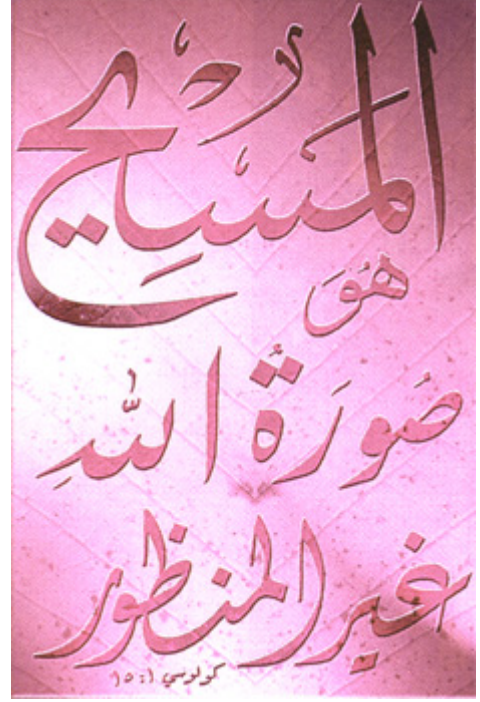 المسيح
هُوَ
صُورَةُ اللهِ
غير المنظور
كولوسي ١ : ١٥